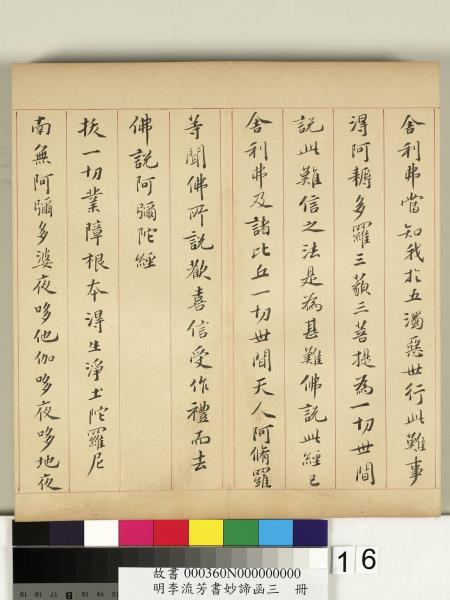 舍利弗當知我於五濁惡世行此難事
得阿耨多羅三藐三菩提為一切世間
說此難信之法是為甚難佛說此經已
舍利弗及諸比丘一切世間天人阿脩羅
等聞佛所說歡喜信受作禮而去
佛說阿彌陀經
拔一切業障根本得生淨土陀羅尼
南無阿彌多婆夜哆他伽哆夜哆地夜
16
故書 000360N000000000
明李流芳書妙諦函三 冊